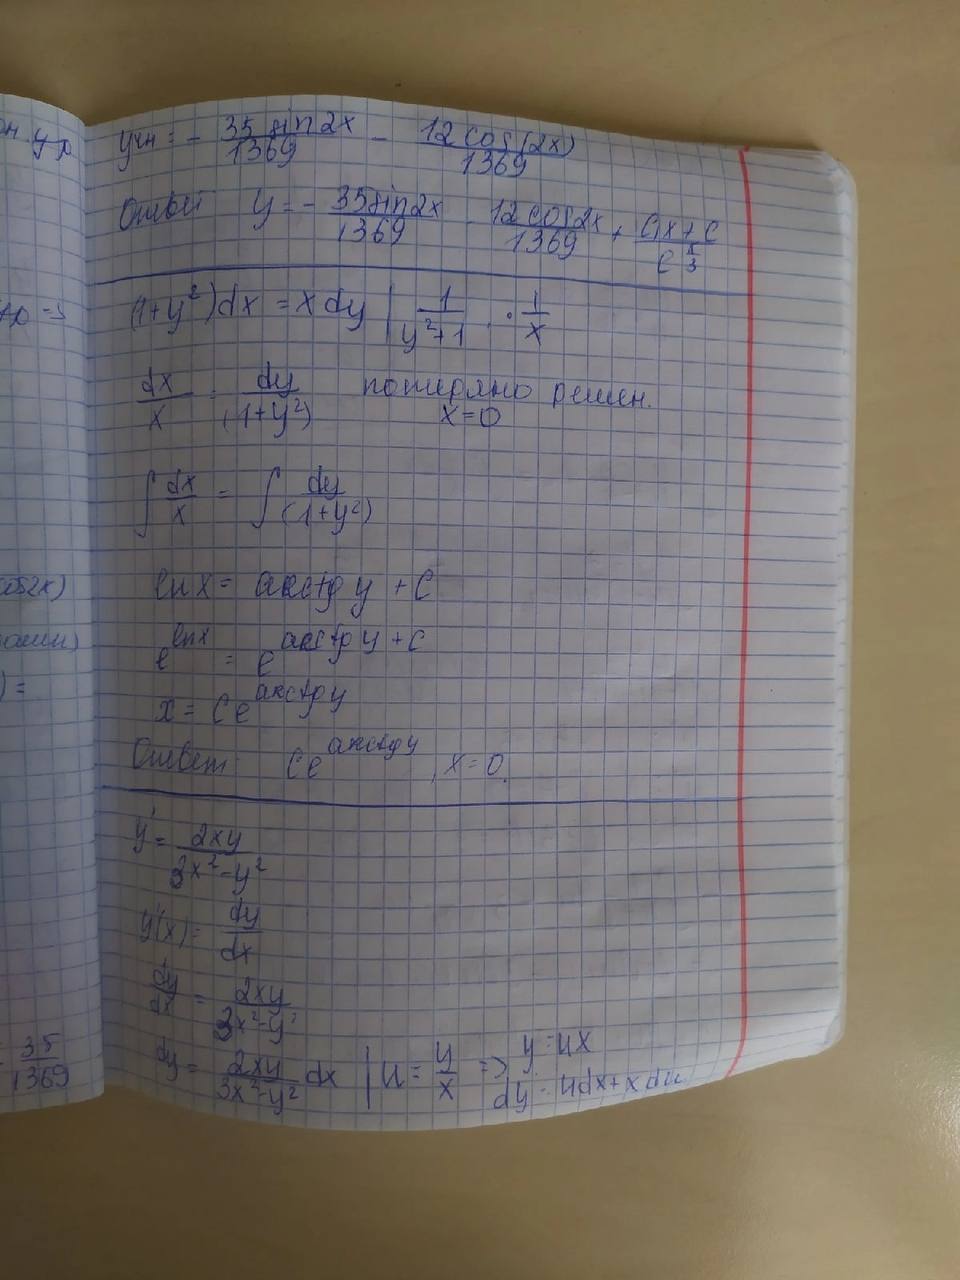 он. ур
yчн = - 35 sin 2x / 1369 - 12 cos(2x) / 1369
Ответ y = - 35 sin 2x / 1369 12 cos 2x / 1369 + C₁x + C / e^(x/3)
(1+y²)dx = x dy | 1/(y²+1) · 1/x
dx/x = dy/(1+y²) потеряно решен.
x=0
∫ dx/x = ∫ dy/(1+y²)
cos2x)
ln x = arctg y + C
e^(ln x) = e^(arctg y + C)
) =
x = C e^(arctg y)
Ответ C e^(arctg y), x=0.
y' = 2xy / 3x²-y²
y'(x) = dy/dx
dy/dx = 2xy / 3x²-y²
= 35/1369
dy = 2xy / 3x²-y² dx | u = y/x => y = ux
dy = udx + x du